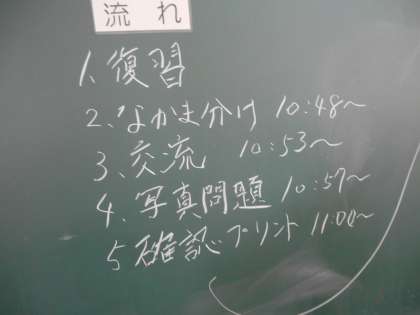 流れ
1、復習
2、なかま分け 10:48〜
3、交流 10:53〜
4、写真問題 10:57〜
5 確認プリント 11:00〜